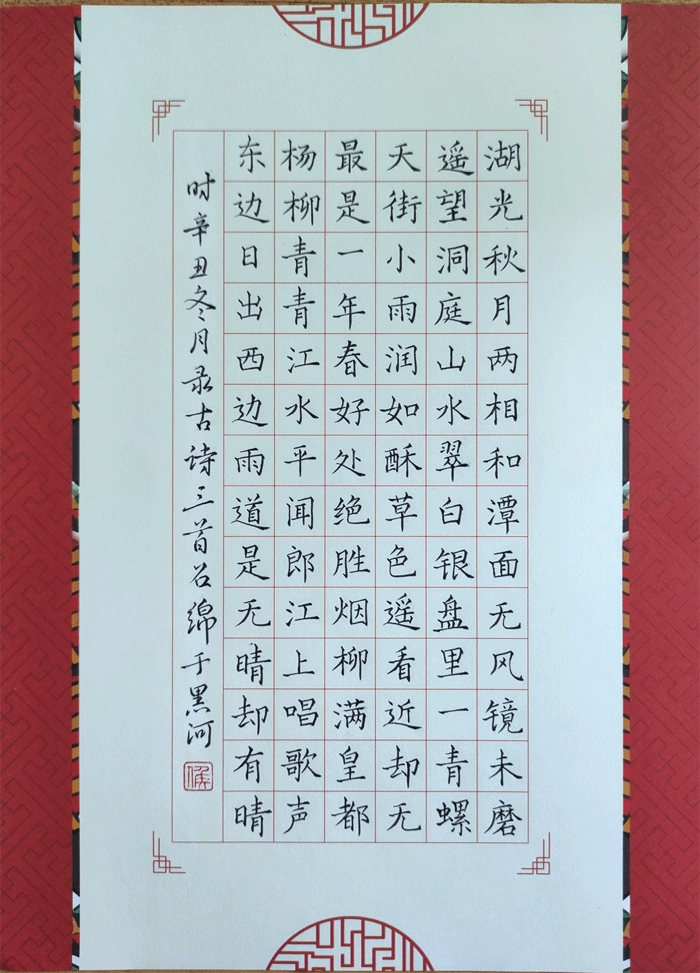 湖光秋月两相和潭面无风镜未磨
遥望洞庭山水翠白银盘里一青螺
天街小雨润如酥草色遥看近却无
最是一年春好处绝胜烟柳满皇都
杨柳青青江水平闻郎江上唱歌声
东边日出西边雨道是无晴却有晴
时辛丑冬月录古诗三首召绵于黑河